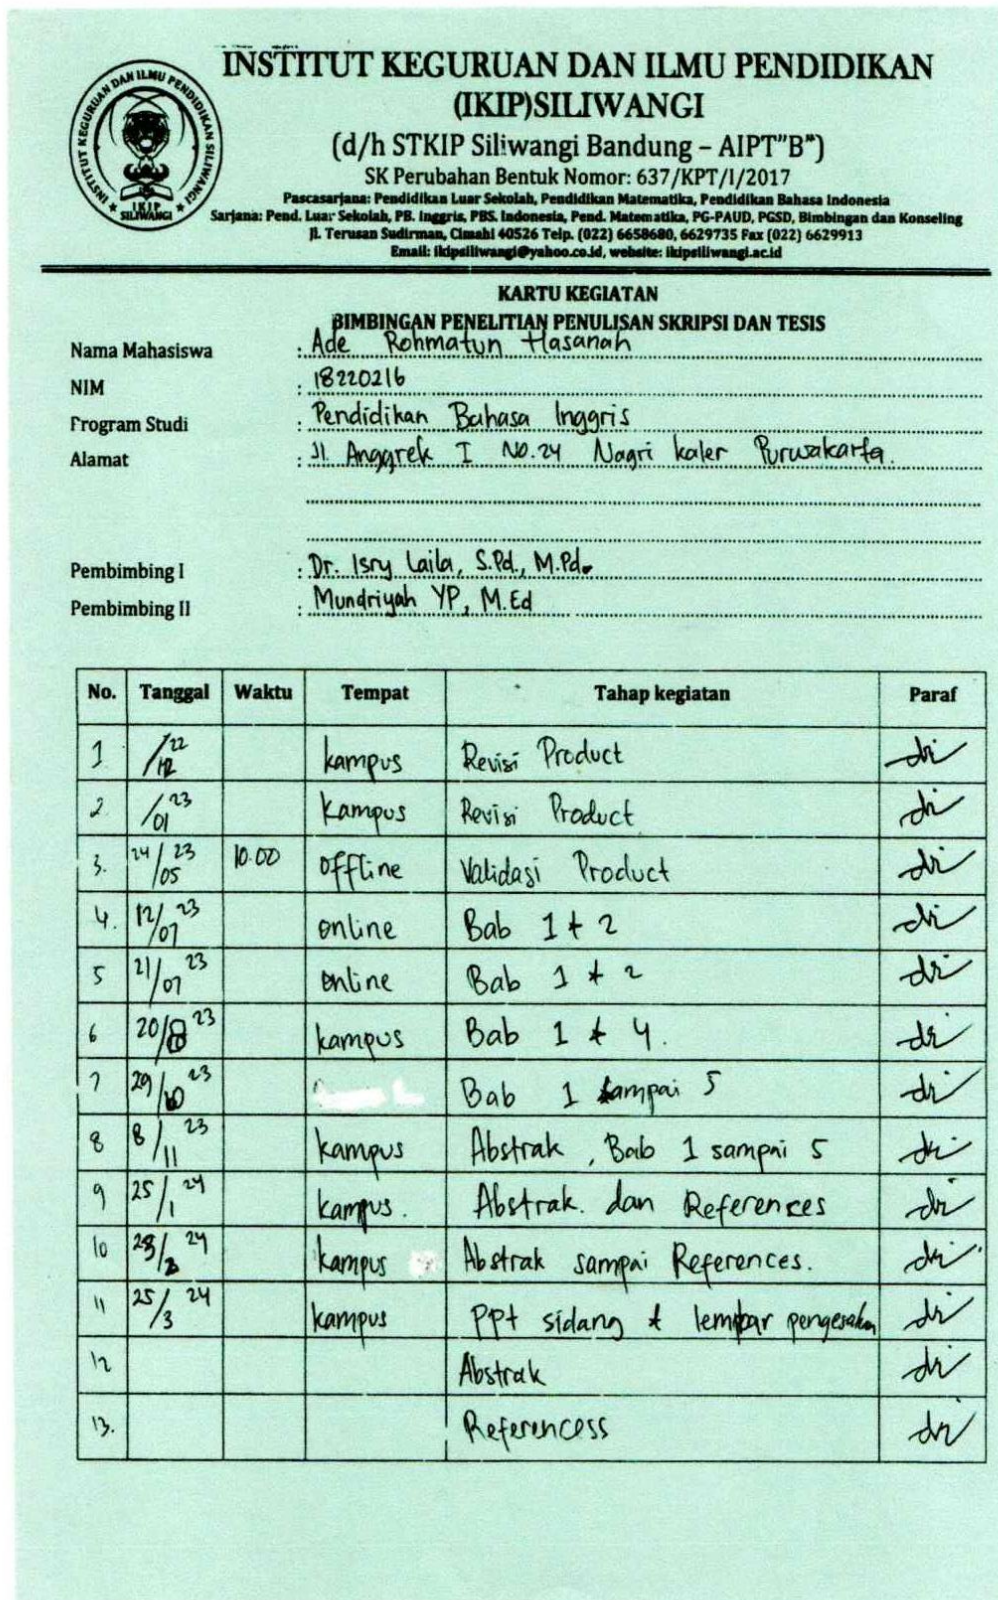 INSTITUT KEGURUAN DAN ILMU PENDIDIKAN
(IKIP)SILIWANGI
(d/h STKIP Siliwangi Bandung – AIPT"B")
SK Perubahan Bentuk Nomor: 637/KPT/I/2017
Pascasarjana: Pendidikan Luar Sekolah, Pendidikan Matematika, Pendidikan Bahasa Indonesia
Sarjana: Pend. Luar Sekolah, PB. Inggris, PBS. Indonesia, Pend. Matematika, PG-PAUD, PGSD, Bimbingan dan Konseling
Jl. Terusan Sudirman, Cimahi 40526 Telp. (022) 6658680, 6629735 Fax (022) 6629913
Email: ikipsiliwangi@yahoo.co.id, website: ikipsiliwangi.ac.id
INSTITUT KEGURUAN DAN ILMU PENDIDIKAN SILIWANGI
IKIP
SILIWANGI
KARTU KEGIATAN
BIMBINGAN PENELITIAN PENULISAN SKRIPSI DAN TESIS
Nama Mahasiswa : Ade Rohmatun Hasanah
NIM : 18220216
Program Studi : Pendidikan Bahasa Inggris
Alamat : Jl. Anggrek I No.24 Nagri kaler Purwakarta.
Pembimbing I : Dr. Isry Laila, S.Pd., M.Pd.
Pembimbing II : Mundriyah YP, M.Ed
No. Tanggal Waktu Tempat Tahap kegiatan Paraf
1 /12 22 kampus Revisi Product
2. /01 23 Kampus Revisi Product
3. 24/05 23 10.00 offline Validasi Product
4. 12/07 23 online Bab 1 + 2
5 21/07 23 online Bab 1 + 2
6 20/8 23 kampus Bab 1 + 4.
7 29/10 23 Bab 1 sampai 5
8 8/11 23 kampus Abstrak, Bab 1 sampai 5
9 25/1 24 kampus. Abstrak. dan References
10 24 kampus Abstrak sampai References.
11 25/3 24 kampus PPt sidang + lembar pengesahan
12 Abstrak
13. Referencess